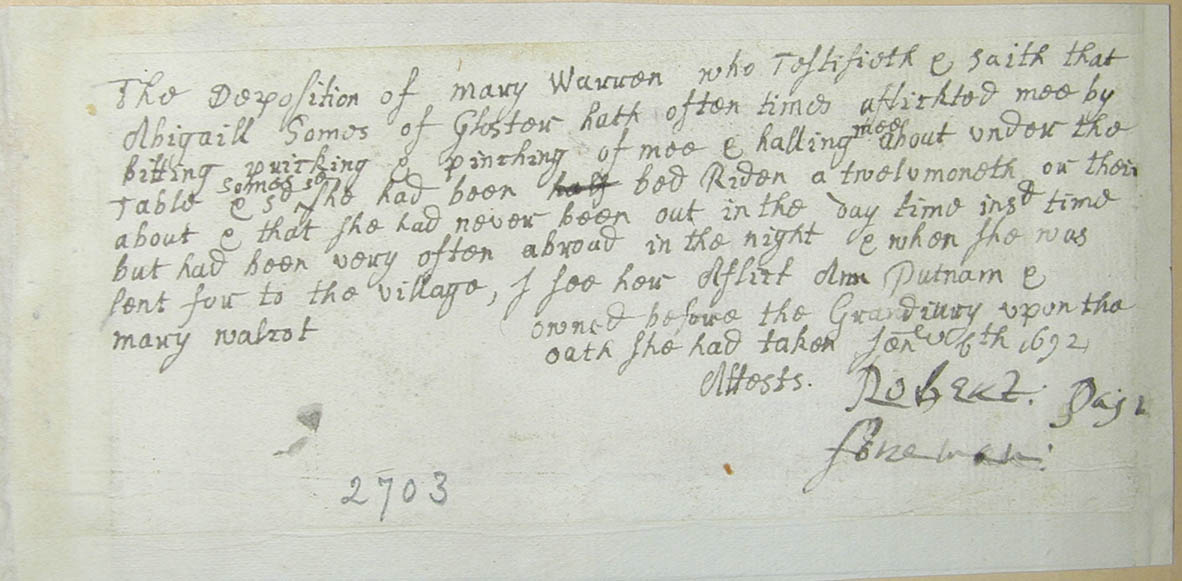 The Deposition of mary Warren who Testifieth & saith that
Abigaill Somes of Gloster hath often times aflickted mee by
bitting pricking & pinching of mee & halling mee about under the
Table & sd Somes sd she had been half bed Riden a twelvmoneth or their
about & that she had never been out in the day time in sd time
but had been very often abroad in the night & when she was
sent for to the village, I see her Aflict Ann Putnam &
mary walcot owned before the Grandiury upon the
oath she had taken Jeneʷ 6th 1692
Attests. Robert: Payn
foreman:
2703